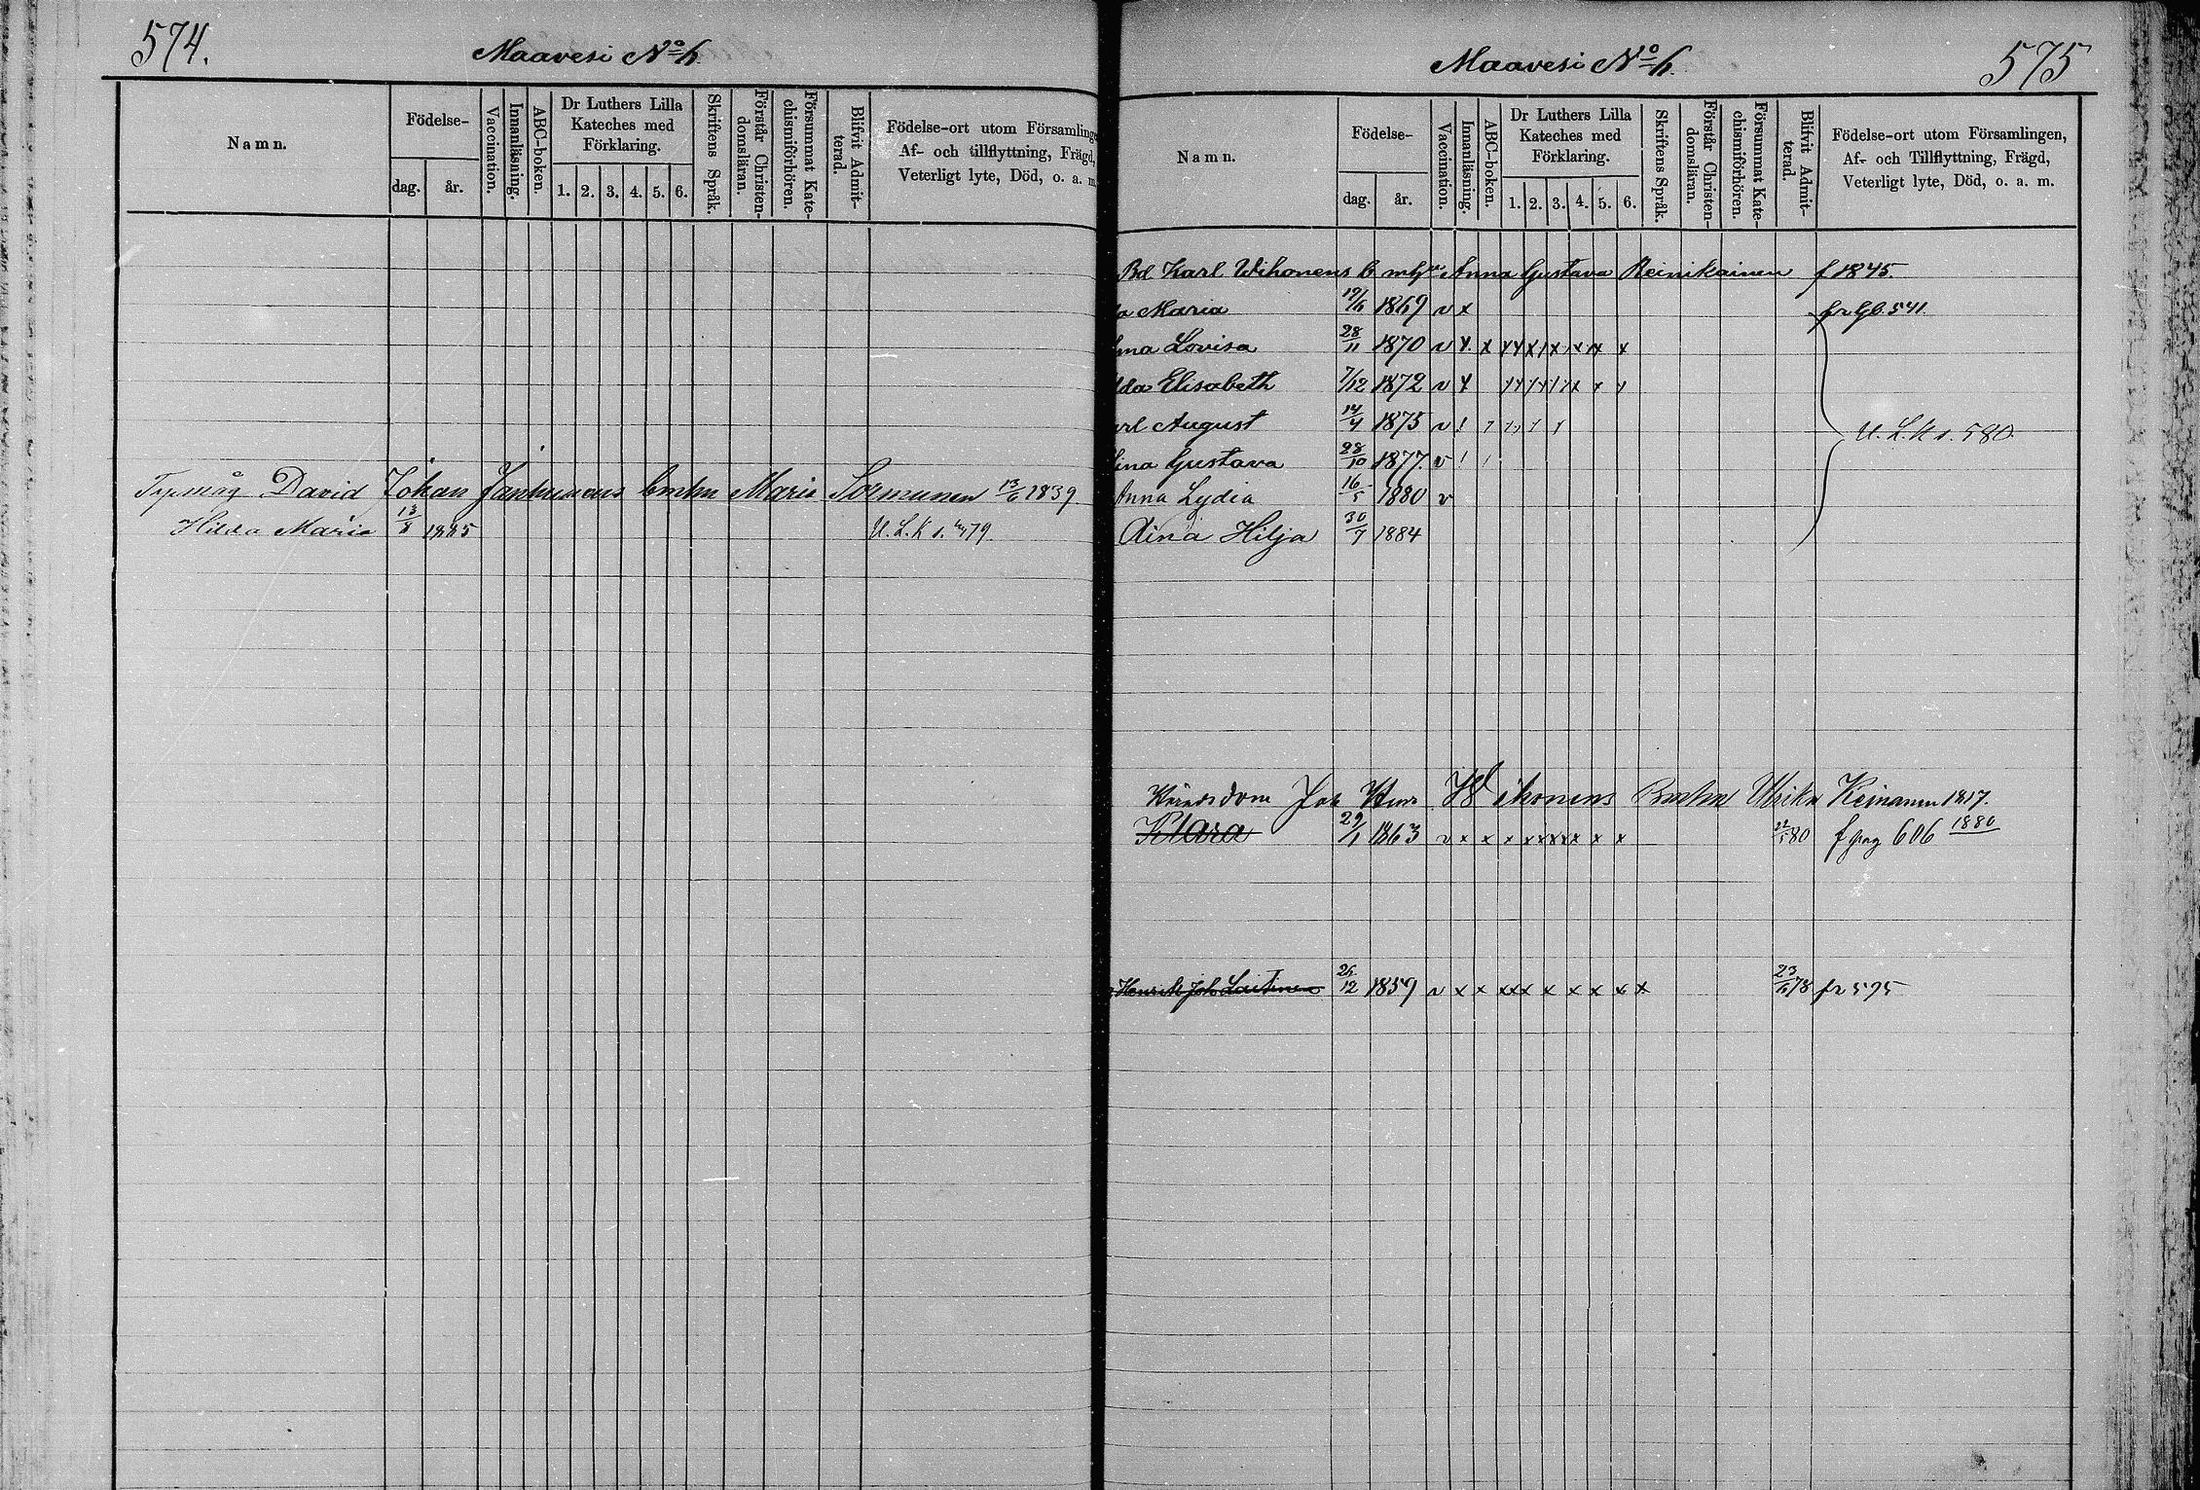 574.
Maavesi No 6.
Namn.
Födelse-
dag.
år.
Vaccination.
Innanläsning.
ABC-boken.
Dr Luthers Lilla
Kateches med
Förklaring.
1. 2. 3. 4. 5. 6.
Skriftens Språk.
Förstår Christen-
domsläran.
Försummat Kate-
chismiförhören.
Blifvit Admit-
terad.
Födelse-ort utom Församlinge
Af- och tillflyttning, Frägd,
Veterligt lyte, Död, o. a. m.
David Johan Janhunens Maria Sormunen 13/6 1839
Hilda Maria 13/8 1885 U. L. K s. 479
575
Maavesi No 6.
Namn.
Födelse-
dag.
år.
Vaccination.
Innanläsning.
ABC-boken.
Dr Luthers Lilla
Kateches med
Förklaring.
1. 2. 3. 4. 5. 6.
Skriftens Språk.
Förstår Christen-
domsläran.
Försummat Kate-
chismiförhören.
Blifvit Admit-
terad.
Födelse-ort utom Församlingen,
Af- och Tillflyttning, Frägd,
Veterligt lyte, Död, o. a. m.
Bd Karl Wihonens Anna Gustava Reinikainen f 1845.
a Maria 1869 v x 541
ma Lovisa 28/11 1870 v x x x x x x x x x x
lda Elisabeth 7/12 1872 v x x x x x x x x
arl August 14/4 1875 v ! U. L. K s. 580.
ina Gustava 28/10 1877. v !
Anna Lydia 16/5 1880 v
Aina Hilja 30/7 1884
Joh Wihonens Ulrika Keinanen 1817.
Klara 29/1 1863 v x x x x x x x x x x 80 f pag 606 1880
Henrik Joh Laitinen 26/12 1859 v x x x x x x x x x x 23/6 78 fr 595